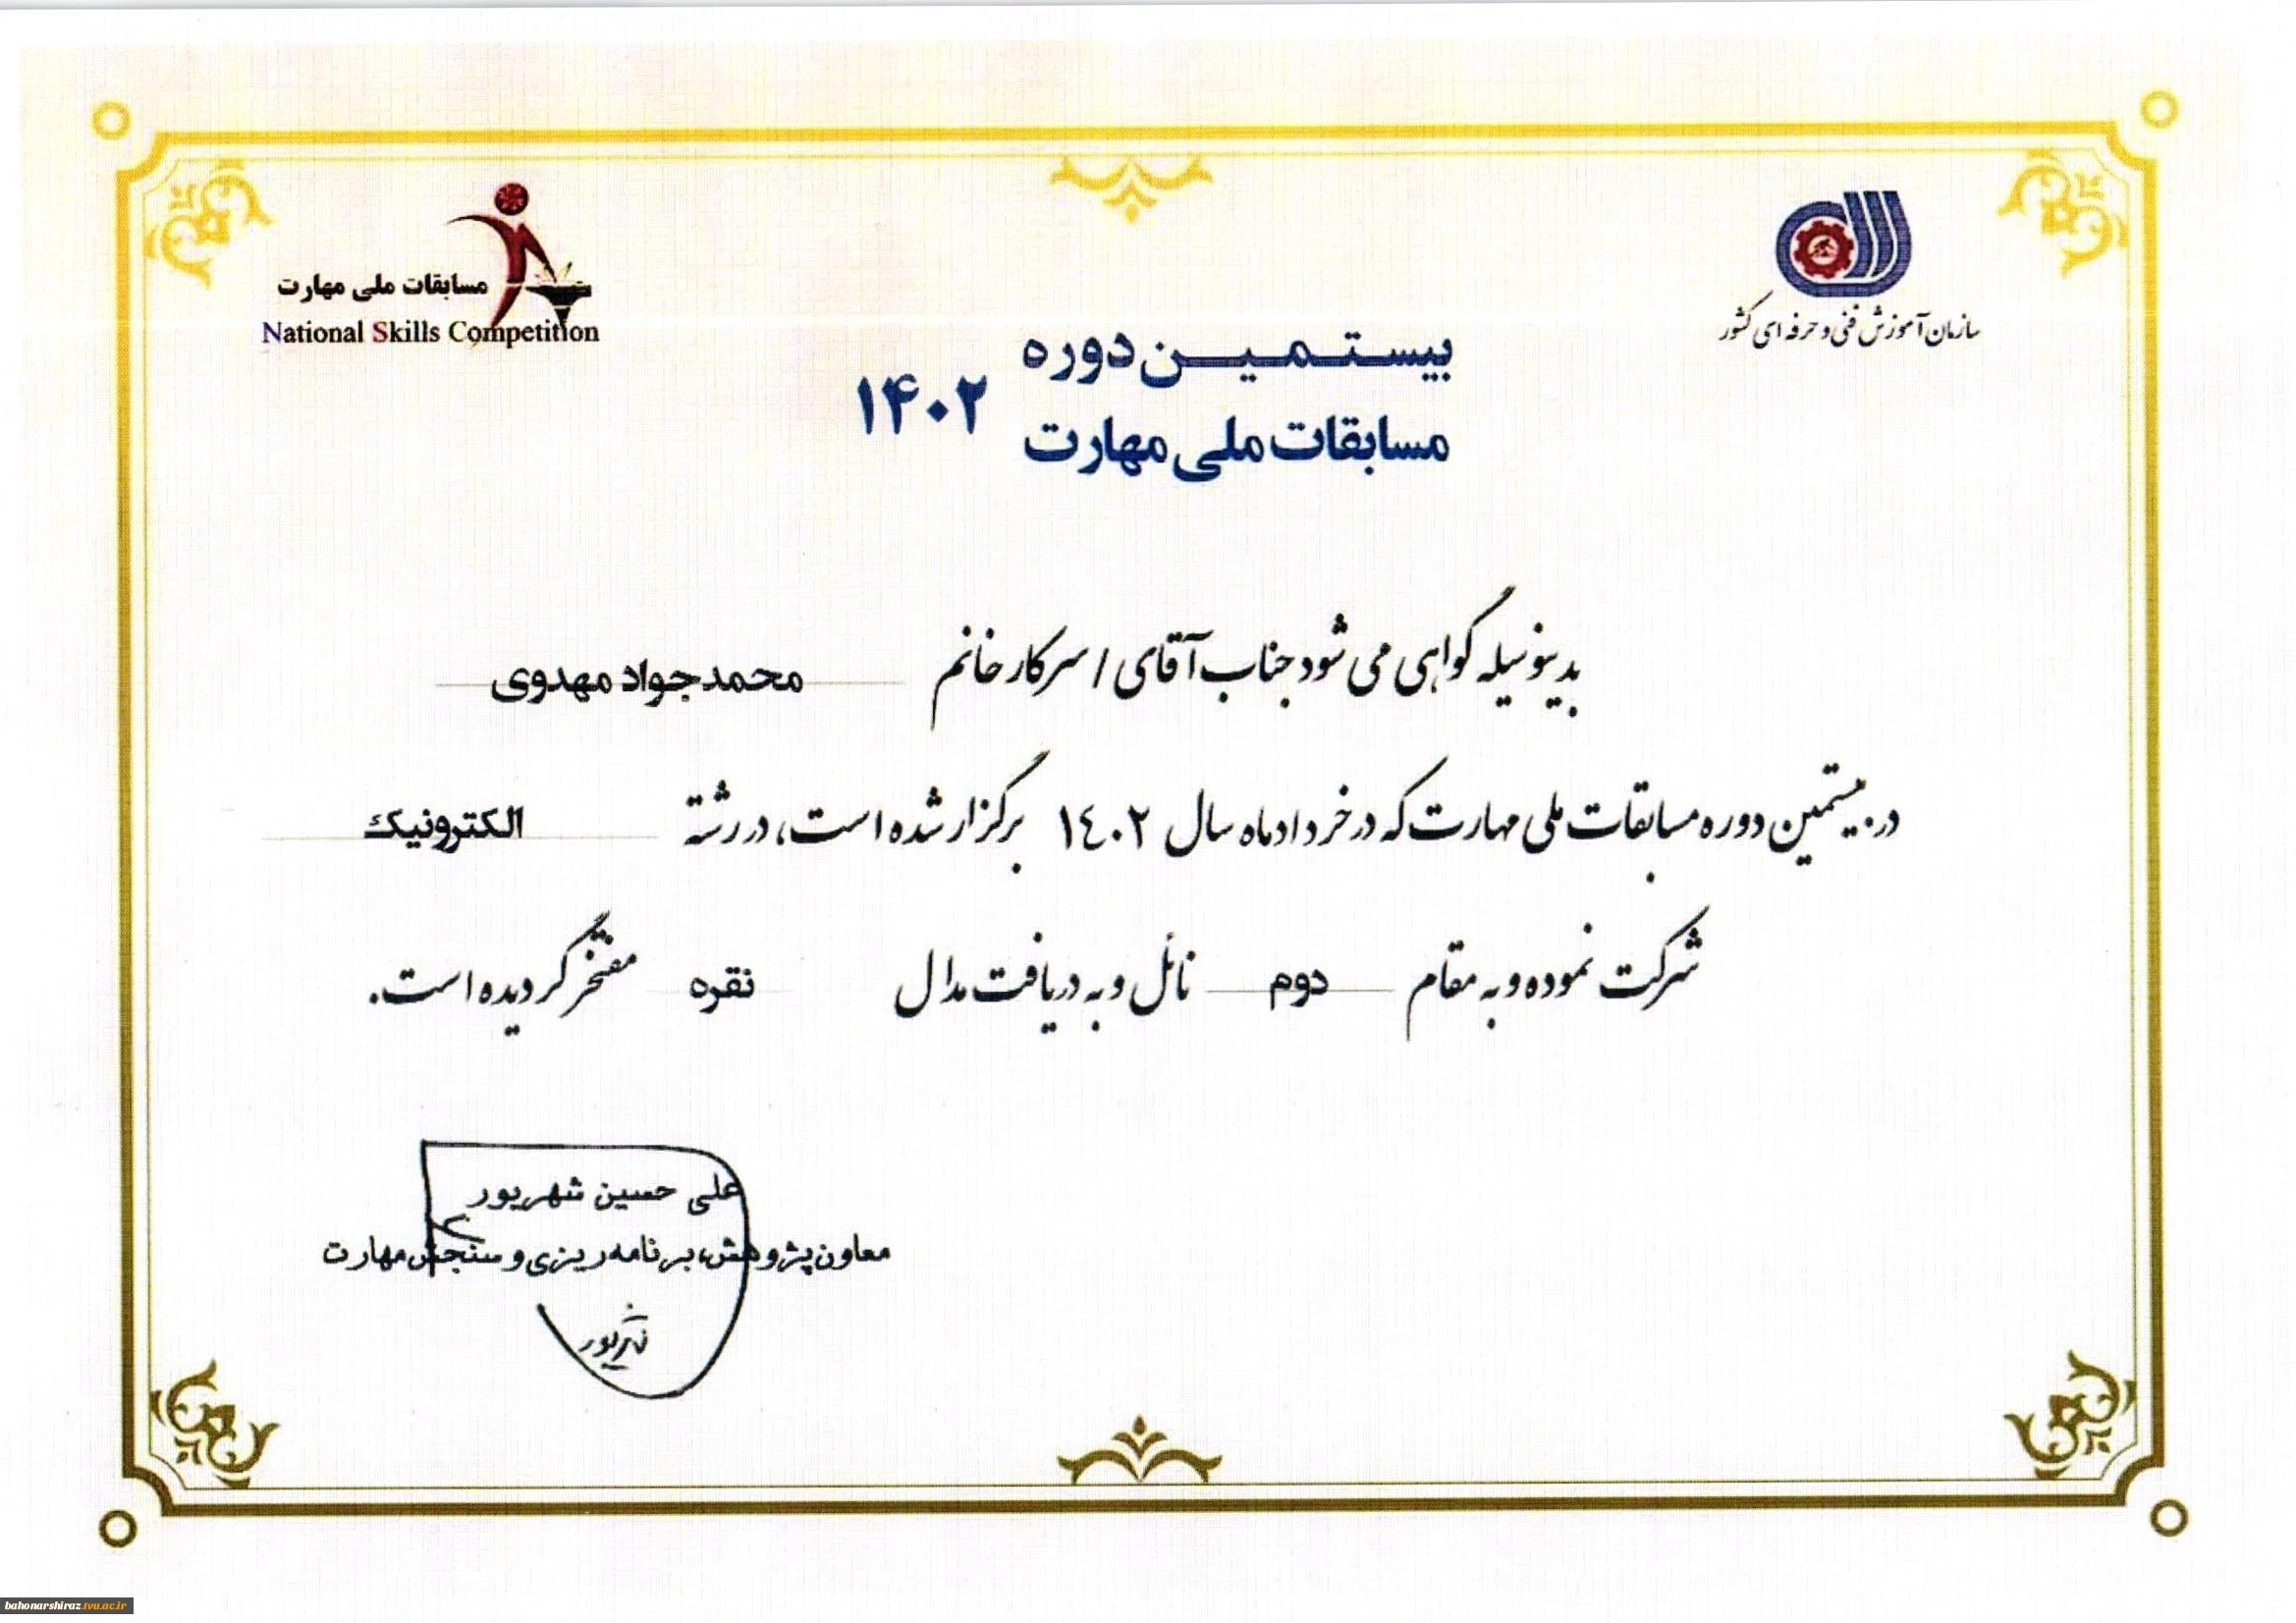 سازمان آموزش فنی و حرفه ای کشور
مسابقات ملی مهارت
National Skills Competition
بیستمین دوره
مسابقات ملی مهارت
۱۴۰۲
بدینوسیله گواهی می شود جناب آقای / سرکار خانم محمدجواد مهدوی
در بیستمین دوره مسابقات ملی مهارت که در خرداد ماه سال ۱٤۰۲ برگزار شده است، در رشته الکترونیک
شرکت نموده و به مقام دوم نائل و به دریافت مدال نقره مفتخر گردیده است.
علی حسین شهریور
معاون پژوهش، برنامه ریزی و سنجش مهارت
شهریور
bahonarshiraz.tvu.ac.ir